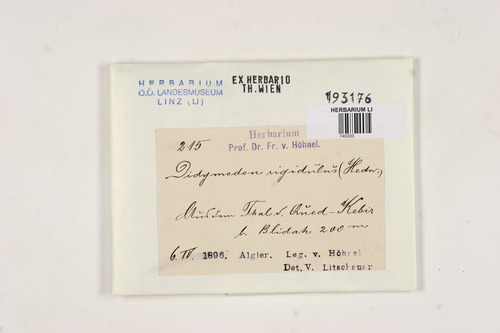 HERBARIUM
O.Ö. LANDESMUSEUM
LINZ (LI)
EX HERBARIO
TH. WIEN
193176
HERBARIUM LI
740333
215
Herbarium
Prof. Dr. Fr. v. Höhnel.
Didymodon rigidulus (Hedw.)
Aus dem Thal d. Oued-Kebir
b. Blidah 200 m
6. IV. 1896. Algier. Leg. v. Höhnel
Det. V. Litschauer